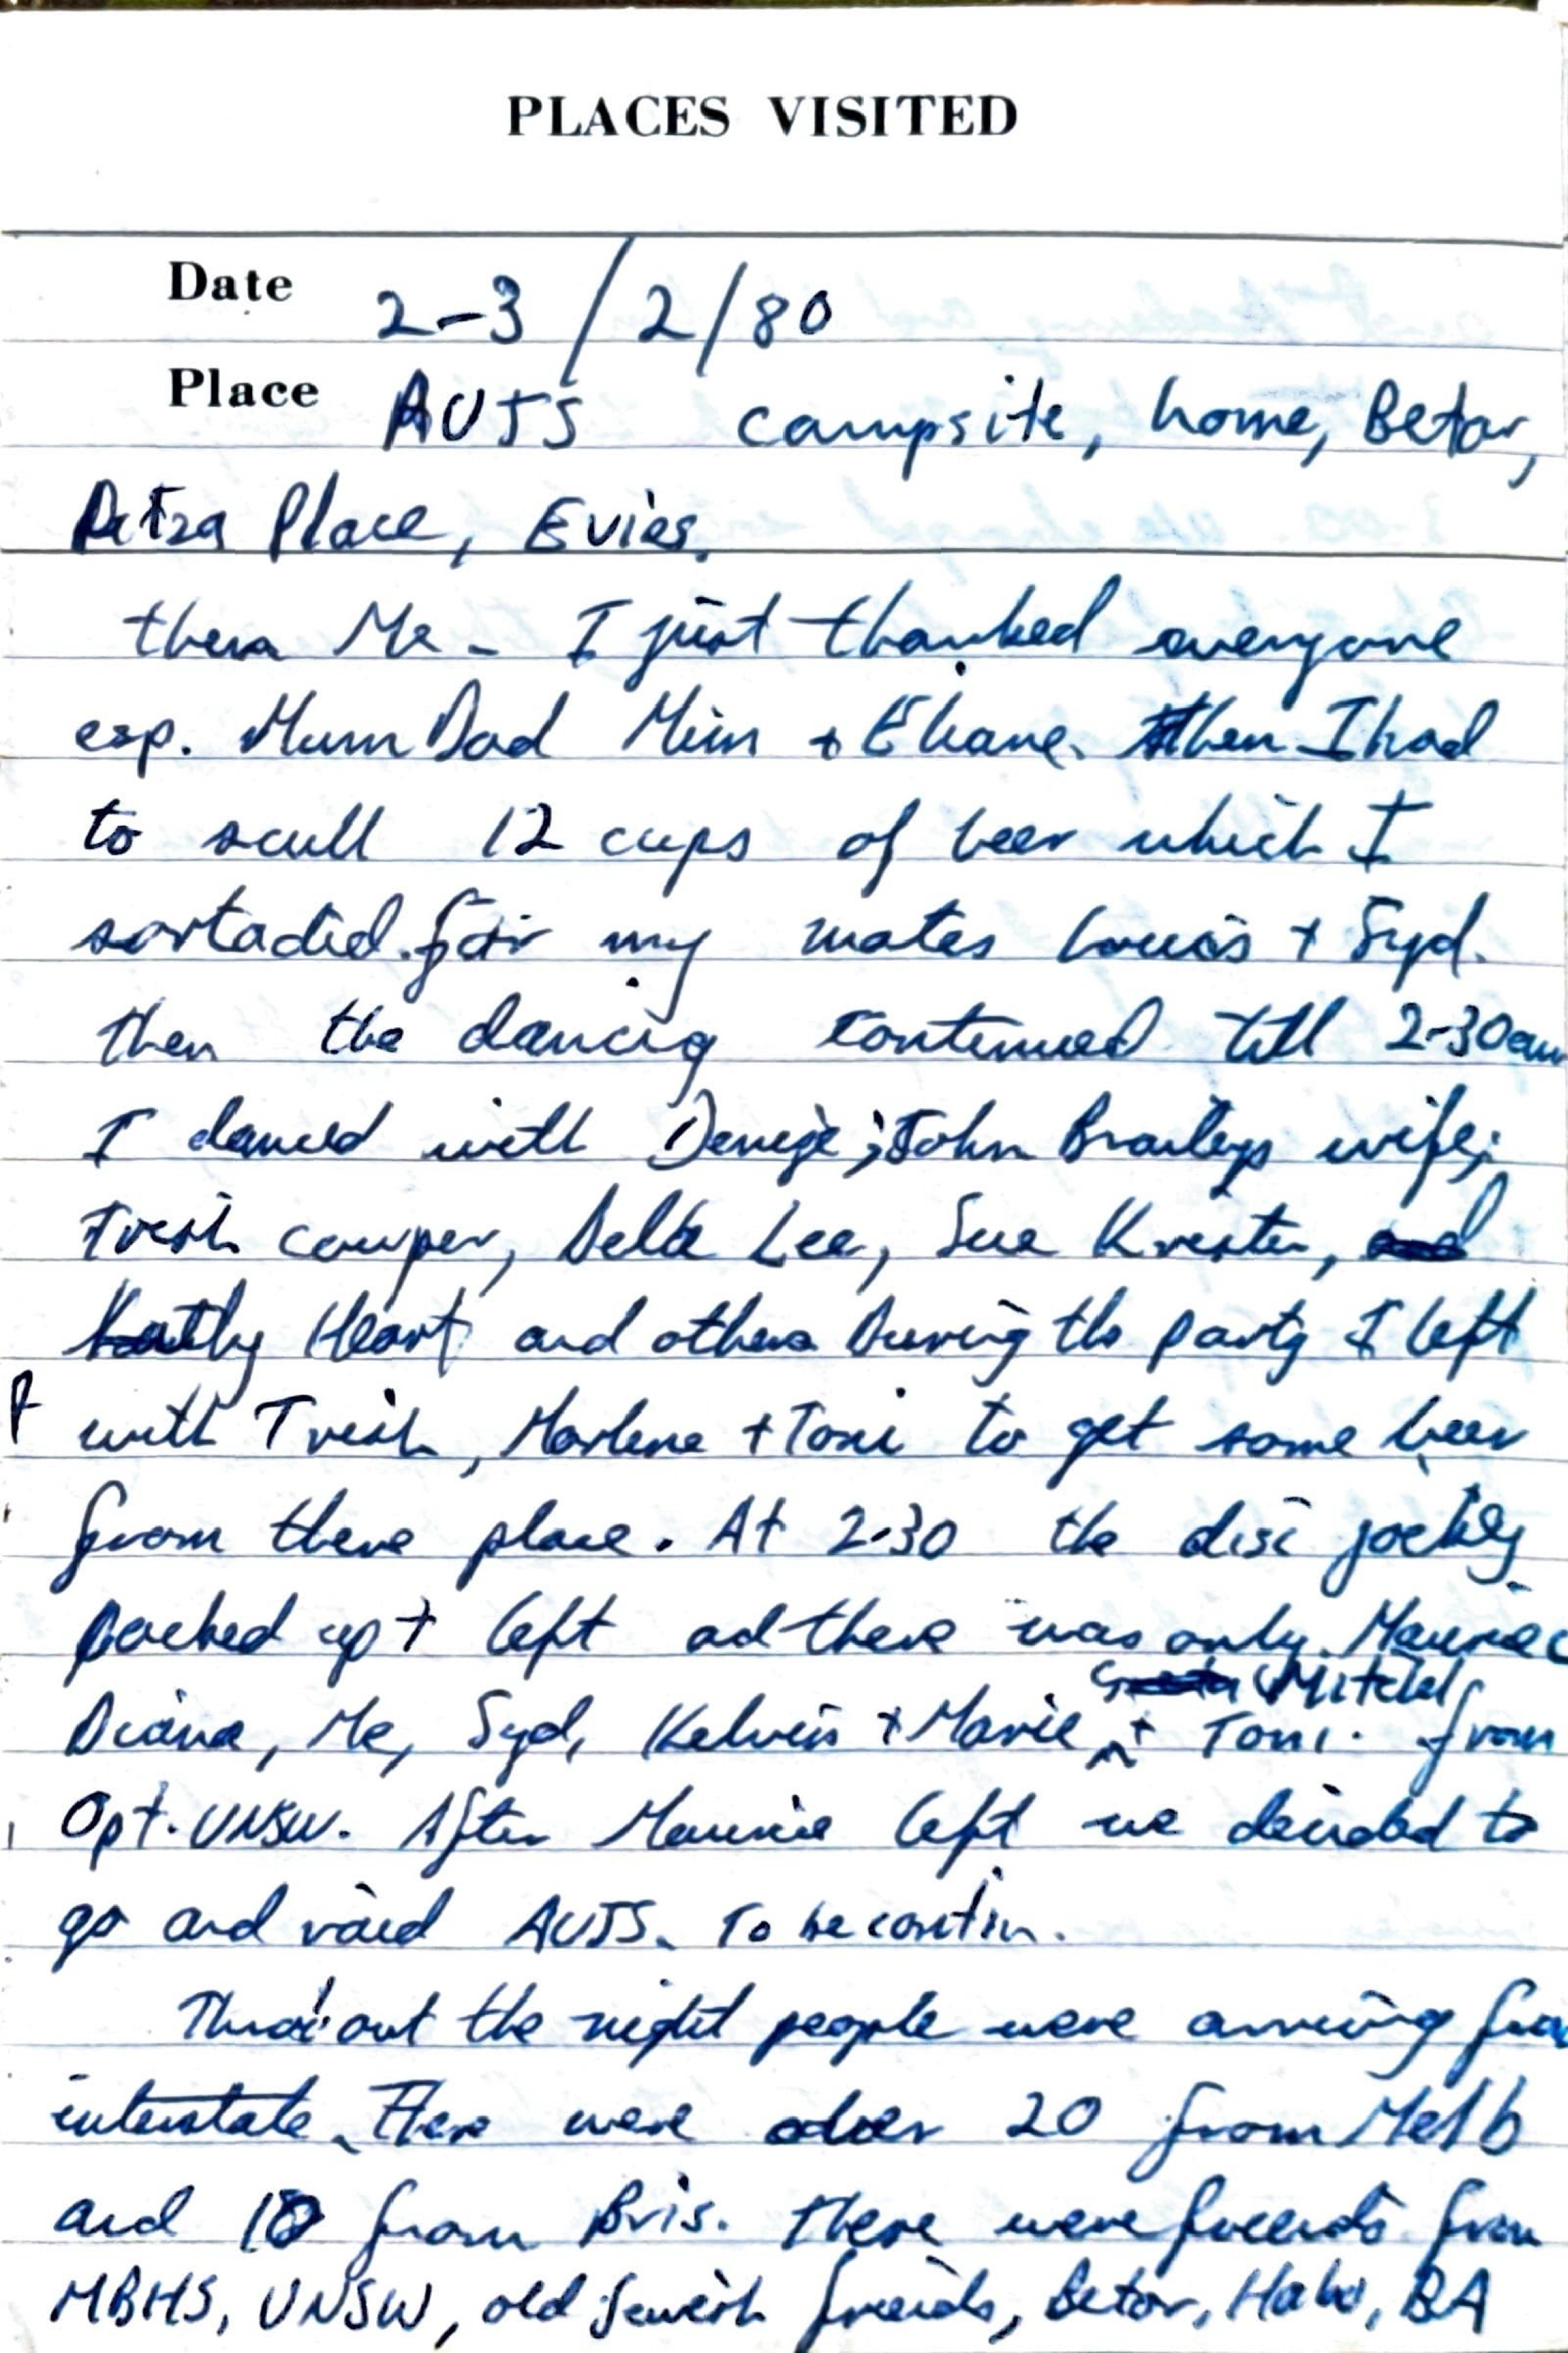 PLACES VISITED
Date 2-3/2/80
Place AUJS campsite, home, Betar,
Place, Evies.
then Me - I just thanked everyone
esp. Mum Dad Mim + Eliane. then I had
to scull 12 cups of beer which I
sortadid. for my mates Louis + Syd.
Then the dancig continued till 2-30am
I danced with Denise; John Braileys wife;
Trish Couper, Lee, Sue, and
Kathy Heart and others During the party I left
with Trish, Marlene + Toni to get some beer
from there place. At 2.30 the disc jockey
packed up + left ad there was only Maurice
Mitchel
Diana, Me, Syd, Kelvin + Marie + Toni. from
Opt. UNSW. After Maurice left we decided to
go and raid AUJS. To be contin.
Thro'out the night people were arriving from
interstate. There were over 20 from Melb
and 10 from Bris. There were friends from
MBHS, UNSW, old Jewish friends, Betar, Habo, BA